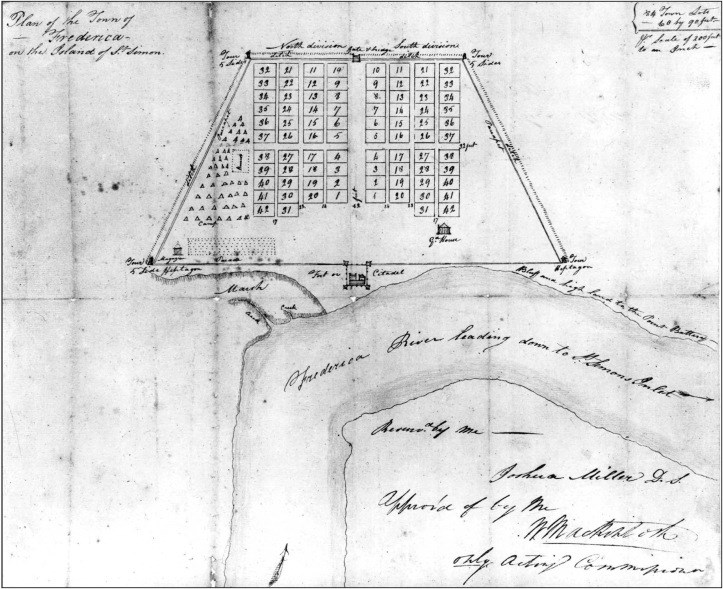 Plan of the Town of
Frederica
on the Island of St. Simon.
84 Town Lots
60 by 90 feet
Pr. Scale of 200 feet
to an Inch
North division Gate & bridge South division
Tour ditch ditch Tour
5 Sides 5 Sides
32 21 11 10 10 11 21 32
33 22 12 9 9 12 22 33
34 23 13 8 8 13 23 34
35 24 14 7 7 14 24 35
36 25 15 6 6 15 25 36
37 26 16 5 5 16 26 37
38 27 17 4 4 17 27 38
39 28 18 3 3 18 28 39
40 29 19 2 2 19 29 40
41 30 20 1 1 20 30 41
42 31 31 42
ditch
ditch
Camp
Gd. House
Magazine
Tour
5 Side Heptagon
Fort or Citadel
Tour
Heptagon
Marsh
Creek
Bluff and high land to the Point Battery
Frederica River leading down to St. Simons Inlet
by me
Joshua Miller D.S.
Approv'd of by Me
W Mackintosh
only Acting Commissioner